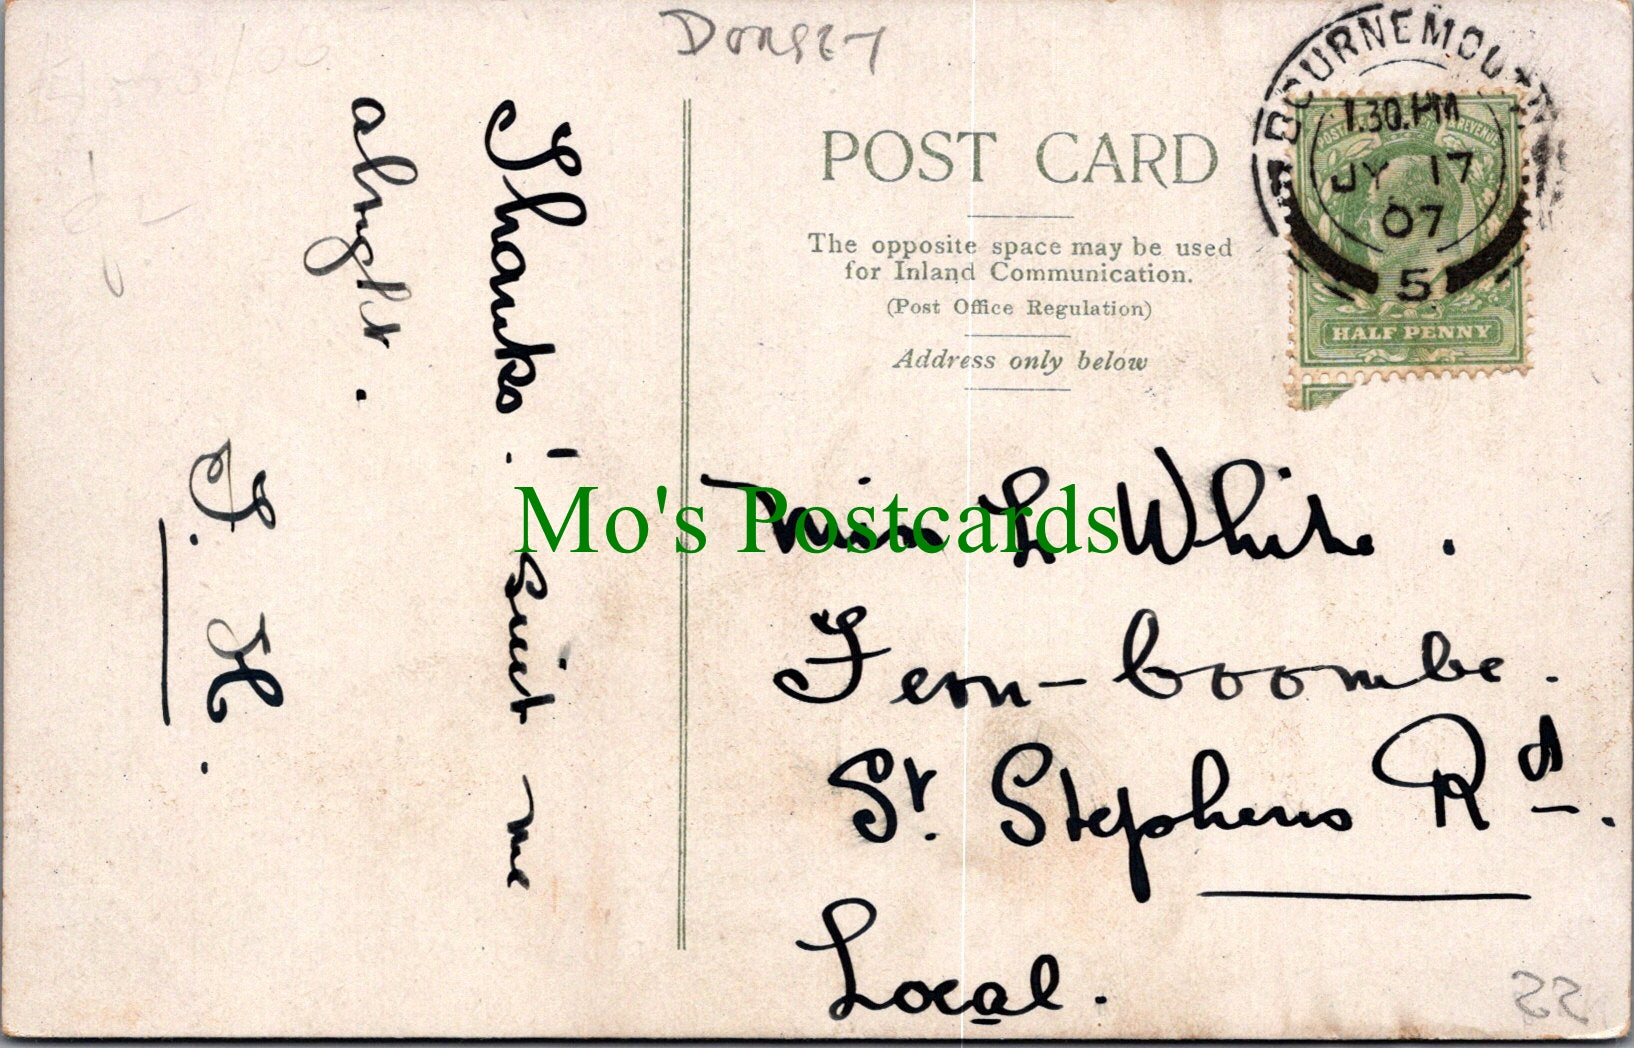 DORSET
Thanks! Suit me
alright.
F. H.
POST CARD
The opposite space may be used
for Inland Communication.
(Post Office Regulation)
Address only below
BOURNEMOUTH
1.30.PM
JY 17
07
5
POSTAGE & REVENUE
HALF PENNY
Mo's Postcards
Miss L White.
Fern-coombe.
St. Stephens Rd.
Local.
22